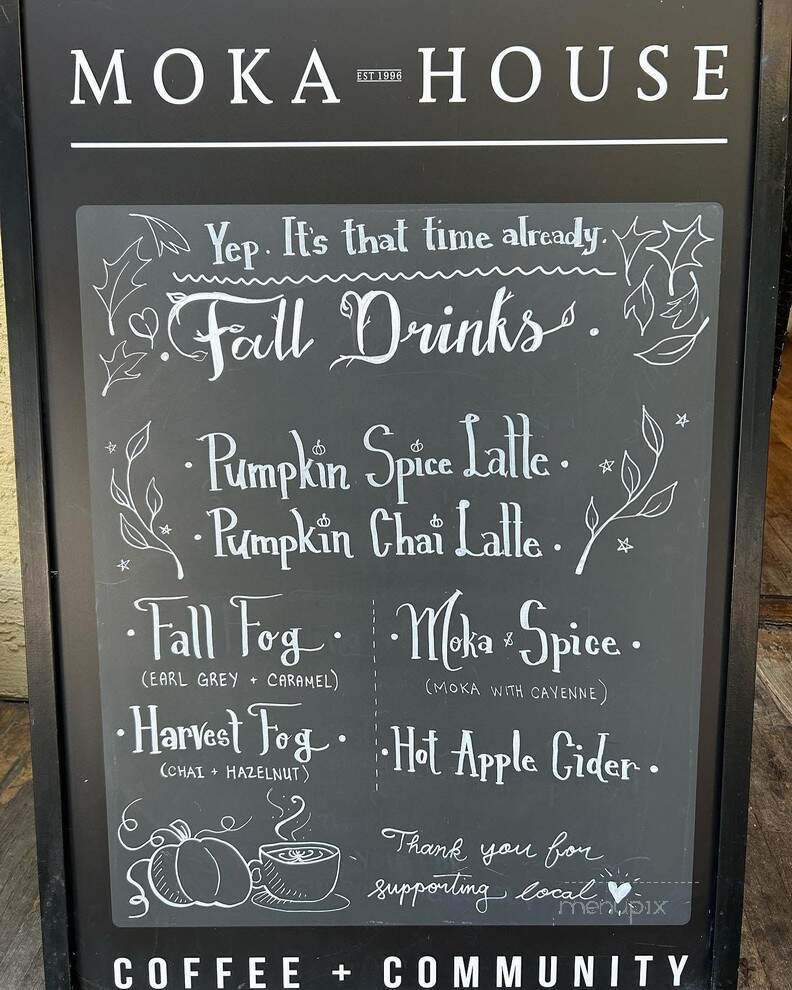 MOKA EST 1996 HOUSE
Yep. It's that time already.
Fall Drinks
· Pumpkin Spice Latte ·
· Pumpkin Chai Latte ·
· Fall Fog ·
(EARL GREY + CARAMEL)
· Harvest Fog ·
(CHAI + HAZELNUT)
· Moka & Spice ·
(MOKA WITH CAYENNE)
· Hot Apple Cider ·
Thank you for
supporting local
menupix
COFFEE + COMMUNITY